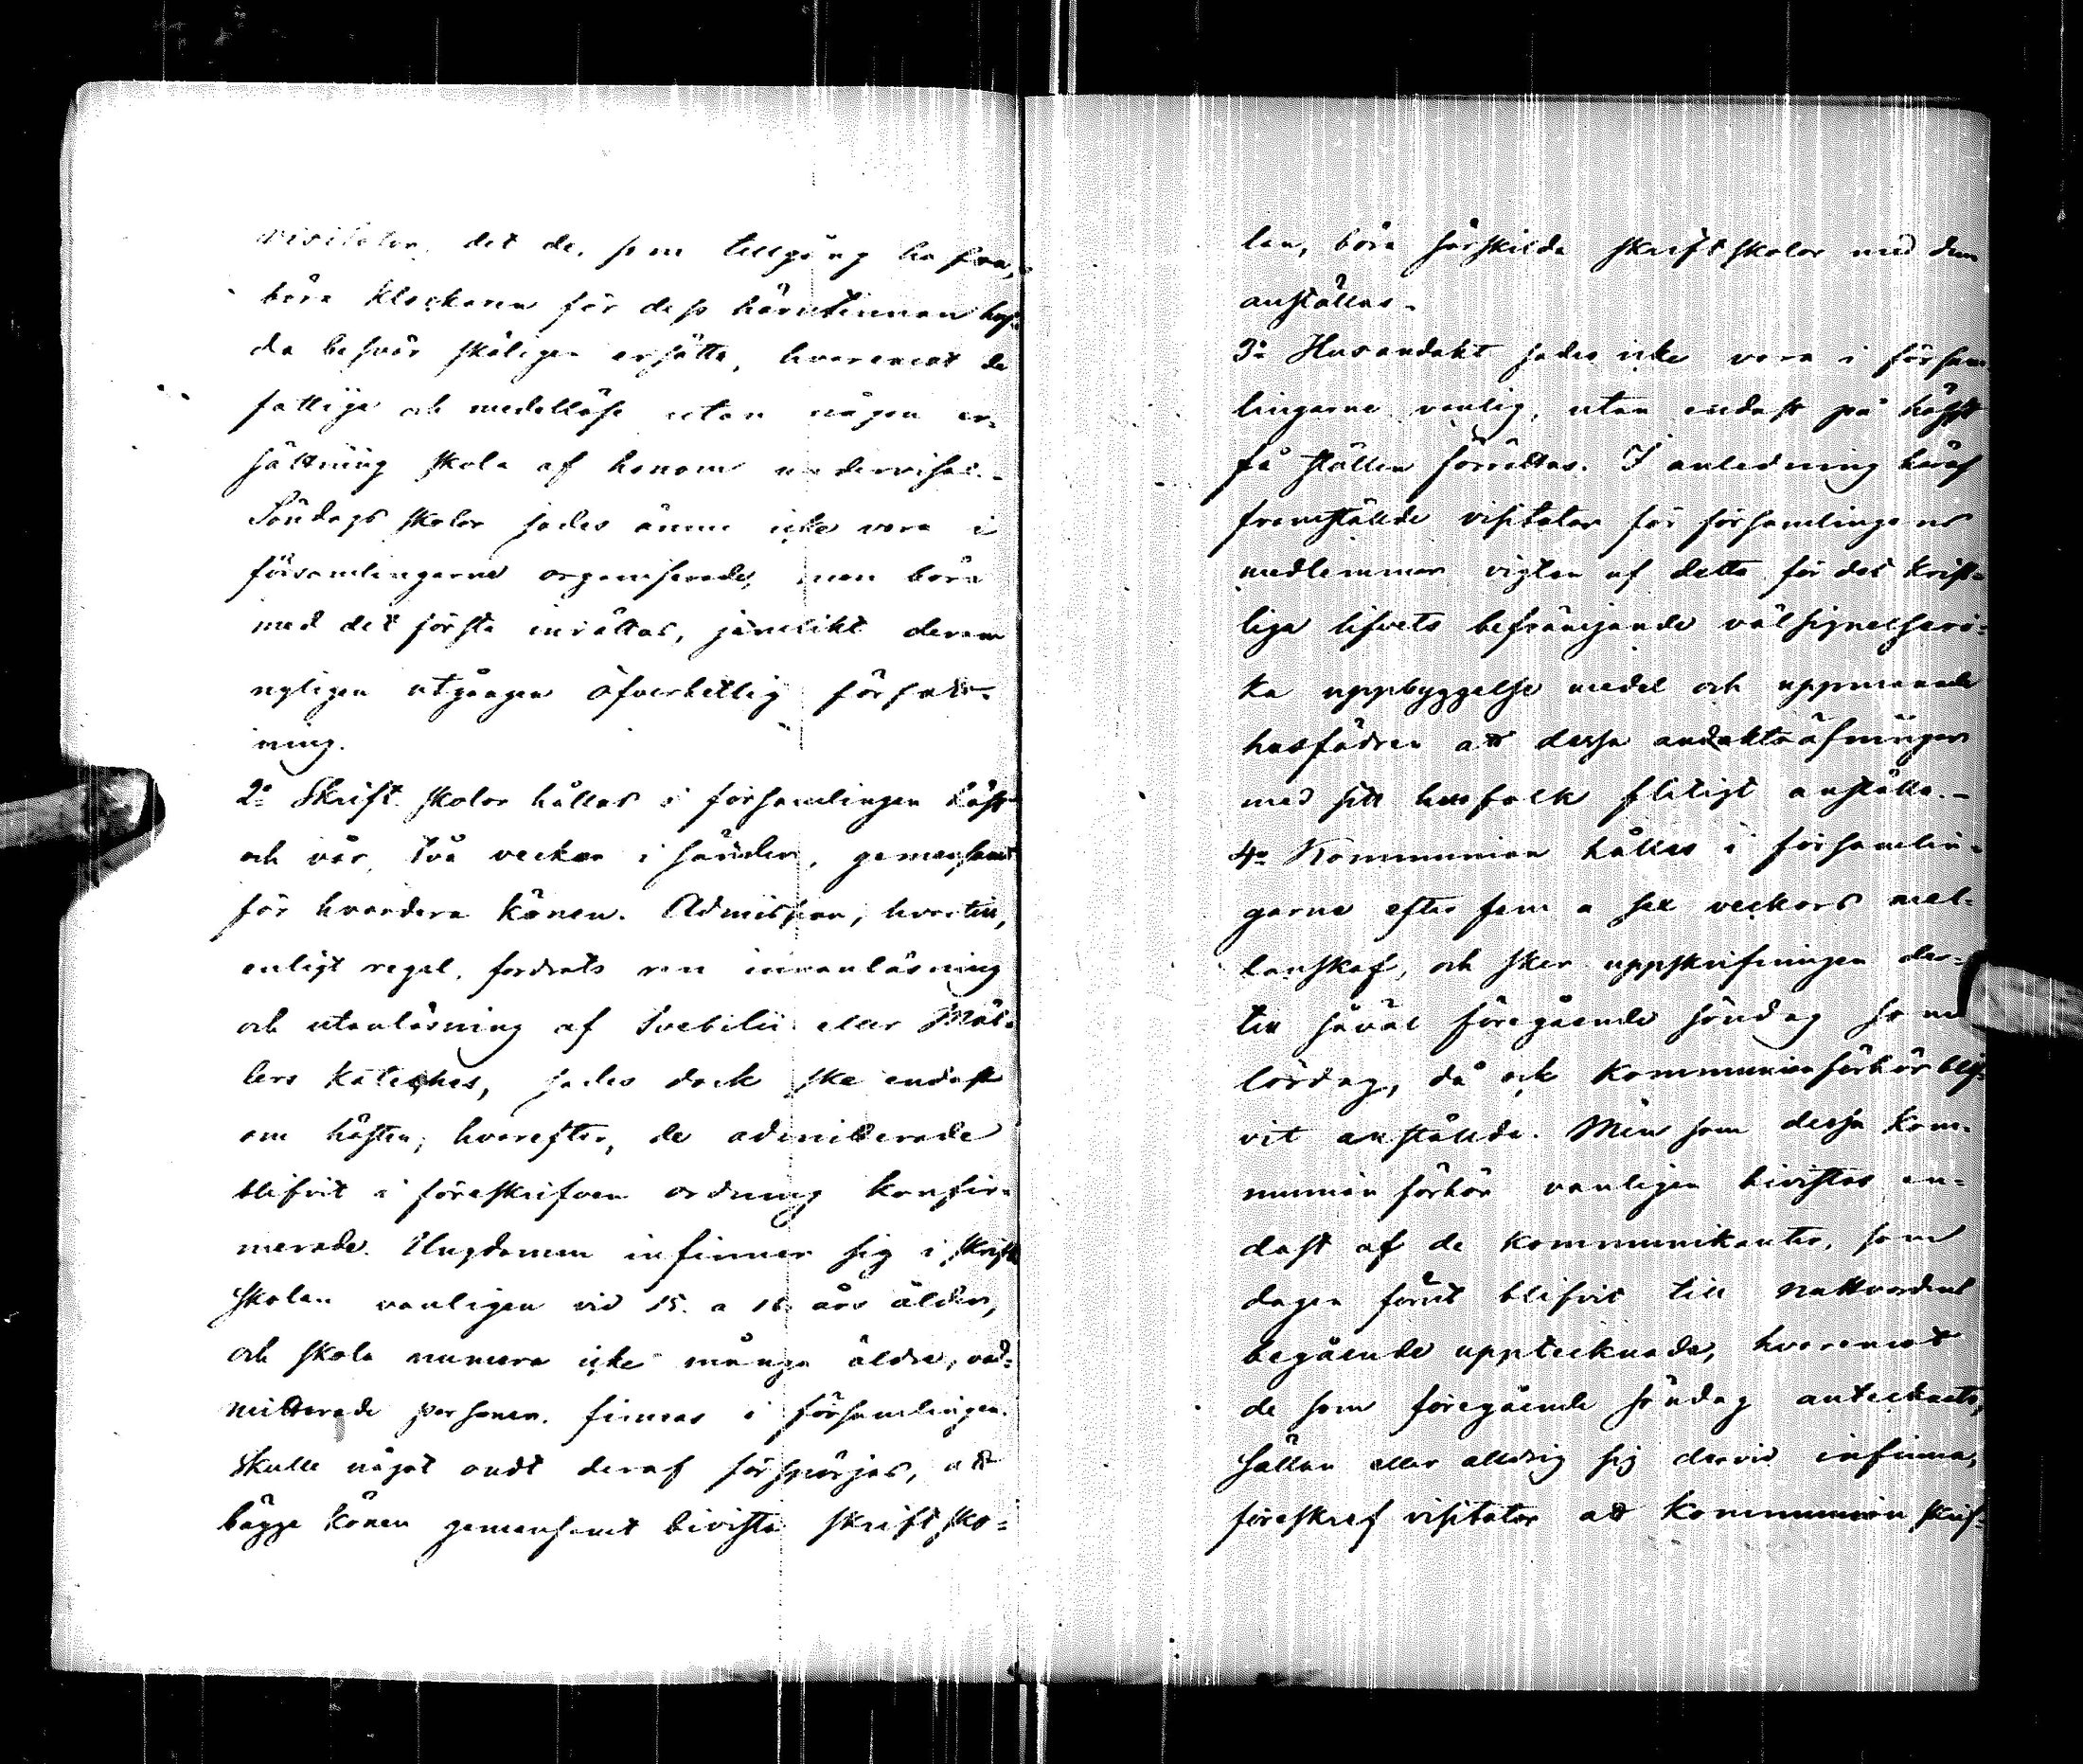 visitator, det de, som tillgång hafva,
böra klockaren för dess härutinnan haf-
da besvär skäligen ersätta, hvaremot de
fattige och medellöse utan någon er-
sättning skola af honom undervisas.-
Söndags skolor sades ännu icke vara i
församlingarne organiserade, men böra
med det första inrättas, jemlikt derom
nyligen utgången öfverhetlig författ-
ning.
2:o Skrift skolor hållas i församlingen höst
och vår, två veckor i sänder, gemensamt
för hvardera könen. Admission, hvartill,
enligt regel, fordrats ren innanläsning
och utanläsning af Svebilii eller Möl-
lers kateches, sades dock ske endast
om hösten, hvarefter, de admitterade
blifvit i föreskrifven ordning konfir-
merade. Ungdomen infinner sig i skrift
skolan vanligen vid 15. a 16. års ålder,
och skola numera icke många äldre, oad-
mitterade personer finnas i församlingen.
Skulle något ondt deraf förspörjas, att
bägge könen gemensamt bivista skriftsko-
lan, böra särskilda skriftskolor med dem
anställas.
3:o Husandakt sades icke vara i försam-
lingarne vanlig, utan endast på högst
få ställen förrättas. I anledning häraf
framställde visitator för församlingens
medlemmar vigten af detta för det krist-
liga lifvets befrämjande välsignelseri-
ka uppbyggelse medel och uppmanade
husfädren att dessa andaktsöfningar
med sitt husfolk flitigt anställa.-
4:o Kommunion hålles i församlin-
garne efter fem a sex veckors mel-
lanskof, och sker uppskrifningen der-
till såväl föregående söndag som
lördag, då och kommunionförhör blif-
vit anställde. Men som dessa kom-
munion förhör vanligen bivistas en-
dast af de kommunikanter, som
dagen förut blifvit till nattvardens
begående upptecknade, hvaremot
de som föregående söndag antecknats,
sällan eller alldrig sig dervid infinna,
föreskref visitator att kommunion skrif-